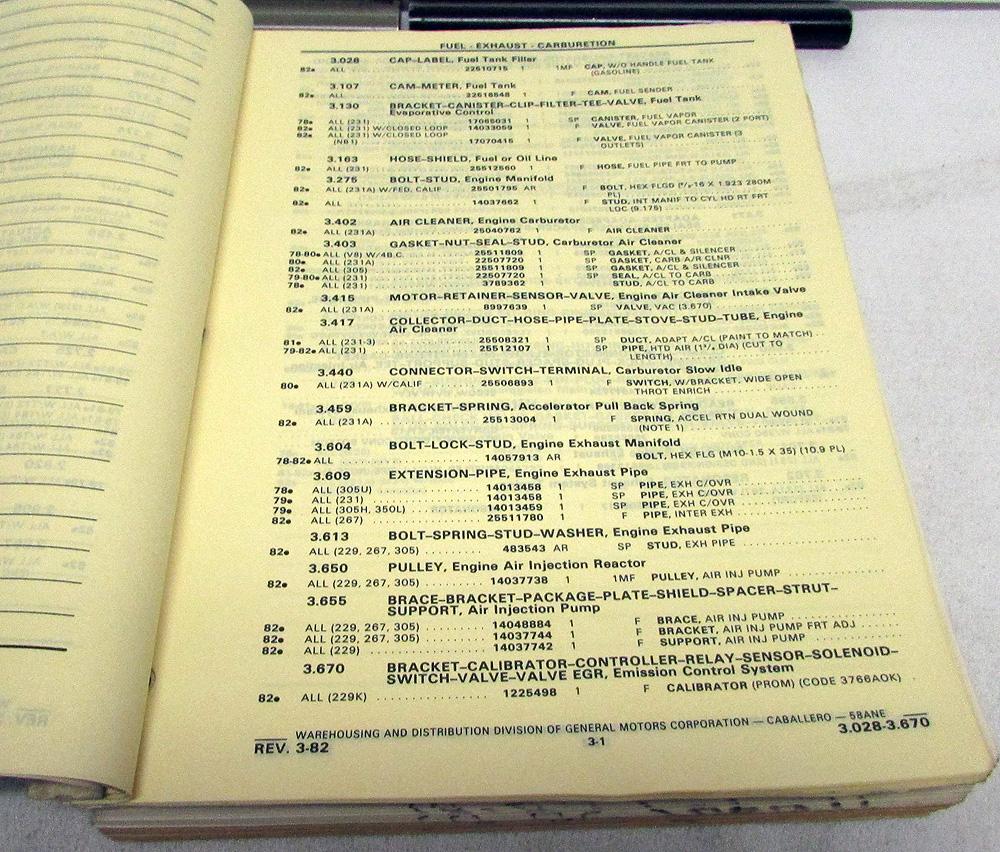 FUEL - EXHAUST - CARBURETION
3.028 CAP–LABEL, Fuel Tank Filler
82● ALL ........ 22510715 1 1MF CAP, W/O HANDLE FUEL TANK
(GASOLINE)
3.107 CAM–METER, Fuel Tank
82● ALL ........ 22516548 1 F CAM, FUEL SENDER
3.130 BRACKET–CANISTER–CLIP–FILTER–TEE–VALVE, Fuel Tank
Evaporative Control
78● ALL (231) ........ 17065031 1 SP CANISTER, FUEL VAPOR
82● ALL (231) W/CLOSED LOOP 14033059 1 F VALVE, FUEL VAPOR CANISTER (2 PORT)
82● ALL (231) W/CLOSED LOOP
(NB1) ........ 17070415 1 F VALVE, FUEL VAPOR CANISTER (3
OUTLETS)
3.163 HOSE–SHIELD, Fuel or Oil Line
82● ALL (231) ........ 25512560 1 F HOSE, FUEL PIPE FRT TO PUMP
3.275 BOLT–STUD, Engine Manifold
82● ALL (231A) W/FED, CALIF 25501795 AR F BOLT, HEX FLGD -16 X 1.923 280M
PL)
82● ALL ........ 14037662 1 F STUD, INT MANIF TO CYL HD RT FRT
LOC (9.175)
3.402 AIR CLEANER, Engine Carburetor
82● ALL (231A) ........ 25040762 1 F AIR CLEANER
3.403 GASKET–NUT–SEAL–STUD, Carburetor Air Cleaner
78-80● ALL (V8) W/4B.C. 25511809 1 SP GASKET, A/CL & SILENCER
80● ALL (231A) ........ 22507720 1 SP GASKET, CARB A/R CLNR
82● ALL (305) ........ 25511809 1 SP GASKET, A/CL & SILENCER
79-80● ALL (231) ........ 22507720 1 SP SEAL, A/CL TO CARB
78● ALL (231) ........ 3789362 1 STUD, A/CL TO CARB
3.415 MOTOR–RETAINER–SENSOR–VALVE, Engine Air Cleaner Intake Valve
82● ALL (231A) ........ 8997639 1 SP VALVE, VAC (3.670)
3.417 COLLECTOR–DUCT–HOSE–PIPE–PLATE–STOVE–STUD–TUBE, Engine
Air Cleaner
81● ALL (231-3) ........ 25508321 1 SP DUCT, ADAPT A/CL (PAINT TO MATCH)
79-82● ALL (231) ........ 25512107 1 SP PIPE, HTD AIR DIA) (CUT TO
LENGTH)
3.440 CONNECTOR–SWITCH–TERMINAL, Carburetor Slow Idle
80● ALL (231A) W/CALIF ........ 25506893 1 F SWITCH, W/BRACKET, WIDE OPEN
THROT ENRICH
3.459 BRACKET–SPRING, Accelerator Pull Back Spring
82● ALL (231A) ........ 25513004 1 F SPRING, ACCEL RTN DUAL WOUND
(NOTE 1)
3.604 BOLT–LOCK–STUD, Engine Exhaust Manifold
78-82● ALL ........ 14057913 AR BOLT, HEX FLG (M10-1.5 X 35) (10.9 PL)
3.609 EXTENSION–PIPE, Engine Exhaust Pipe
78● ALL (305U) ........ 14013458 1 SP PIPE, EXH C/OVR
79● ALL (231) ........ 14013458 1 SP PIPE, EXH C/OVR
79● ALL (305H, 350L) ........ 14013459 1 SP PIPE, EXH C/OVR
82● ALL (267) ........ 25511780 1 F PIPE, INTER EXH
3.613 BOLT–SPRING–STUD–WASHER, Engine Exhaust Pipe
82● ALL (229, 267, 305) ........ 483543 AR SP STUD, EXH PIPE
3.650 PULLEY, Engine Air Injection Reactor
82● ALL (229, 267, 305) ........ 14037738 1 1MF PULLEY, AIR INJ PUMP
3.655 BRACE–BRACKET–PACKAGE–PLATE–SHIELD–SPACER–STRUT–
SUPPORT, Air Injection Pump
82● ALL (229, 267, 305) ........ 14048884 1 F BRACE, AIR INJ PUMP
82● ALL (229, 267, 305) ........ 14037744 1 F BRACKET, AIR INJ PUMP FRT ADJ
82● ALL (229) ........ 14037742 1 F SUPPORT, AIR INJ PUMP
3.670 BRACKET–CALIBRATOR–CONTROLLER–RELAY–SENSOR–SOLENOID–
SWITCH–VALVE–VALVE EGR, Emission Control System
82● ALL (229K) ........ 1225498 1 F CALIBRATOR (PROM) (CODE 3766AOK)
WAREHOUSING AND DISTRIBUTION DIVISION OF GENERAL MOTORS CORPORATION — CABALLERO — 58ANE
REV. 3-82 3-1 3.028-3.670